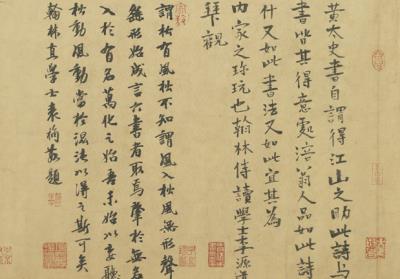 黃太史書自謂得江山之助此詩与
書皆其得意處涪翁人品如此詩
什又如此書法又如此宜其為
內家之珎玩也翰林侍讀學士李源道
拜觀
謂松有風松不知謂風入松風無形聲
繇形始成言六書者取焉聲於無名
入於有名萬化之始吾未始以妄聽
松動風動當於混淪以得之斯可矣
翰林直學士袁桷敬題